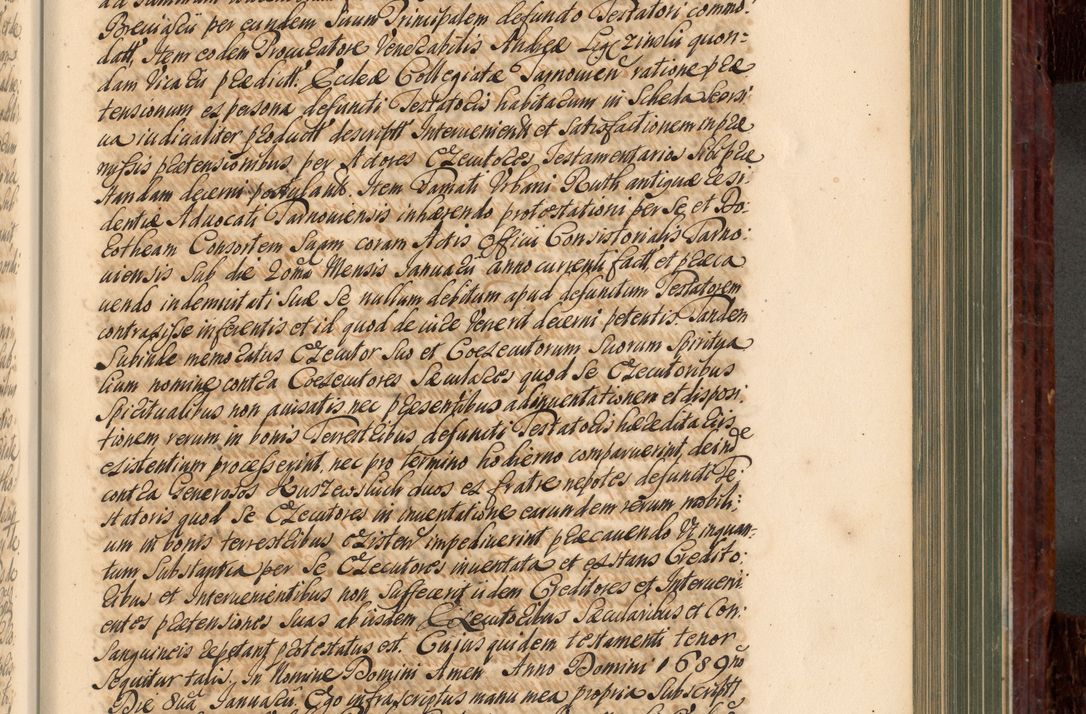 Breviarii per eundem suum Principalem defuncto Testatori commo:
datt, Item eodem Procuratore Venerabilis Andreæ Lyczinslii quon:
dam Vicarii prædictt, Ecclæ Collegiatæ Tarnovien ratione præ
tensionum ex persona defuncti Testatoris habitarum in Scheda seorsi
va iudicialiter productt descriptt Intervenient et satisfactionem in præ
missis prætensionibus per Adores Executores Testamentarios sibi præ
standam decerni postulant. Item Famati Urbani Ruth antiquæ resi
dentiæ Advocati Tarnoviensis inhærendo protestationi per se et Do:
rotheam Consortem Suam coram Actis Officii Consistorialis Tarno:
viensis sub die 20ma Mensis Januarii anno currenti factt, et præca
vendo indemnitati suæ se nullum debitum apud defunctum Testatorem
contraxisse inferentis et id quod de iure venerit decerni petentis. Tandem
Subinde memoratus Executor suo et Coexecutorum suorum Spiritua
lium nomine contra Coexecutores Sæculares quod se Executoribus
Spiritualibus non avisatis nec præsentibus ad inventationem et disposi:
tionem rerum in bonis Terrestribus defuncti Testatoris hæreditariis
existentium processerint, nec pro termino hodierno comparuerint, deinde
contra Generosos duos ex fratre nepotes defuncti Te:
statoris quod se Executores in inventatione earundem rerum mobili:
um in bonis terrestribus existen impediverint præcavendo Ut inquan:
tum Substantia per se Executores inventata et extans Credito:
ribus et Intervenientibus non suffecerit iidem Creditores et Interveni
entes prætensiones suas ab iisdem Executoribus Sæcularibus et Con:
sanguineis repetant protestatus est. Cuius quidem testamenti tenor
sequitur talis. In Nomine Domini Amen Anno Domini 1689no
Die 8va Januarii. Ego infrascriptus manu mea propria Subscriptt